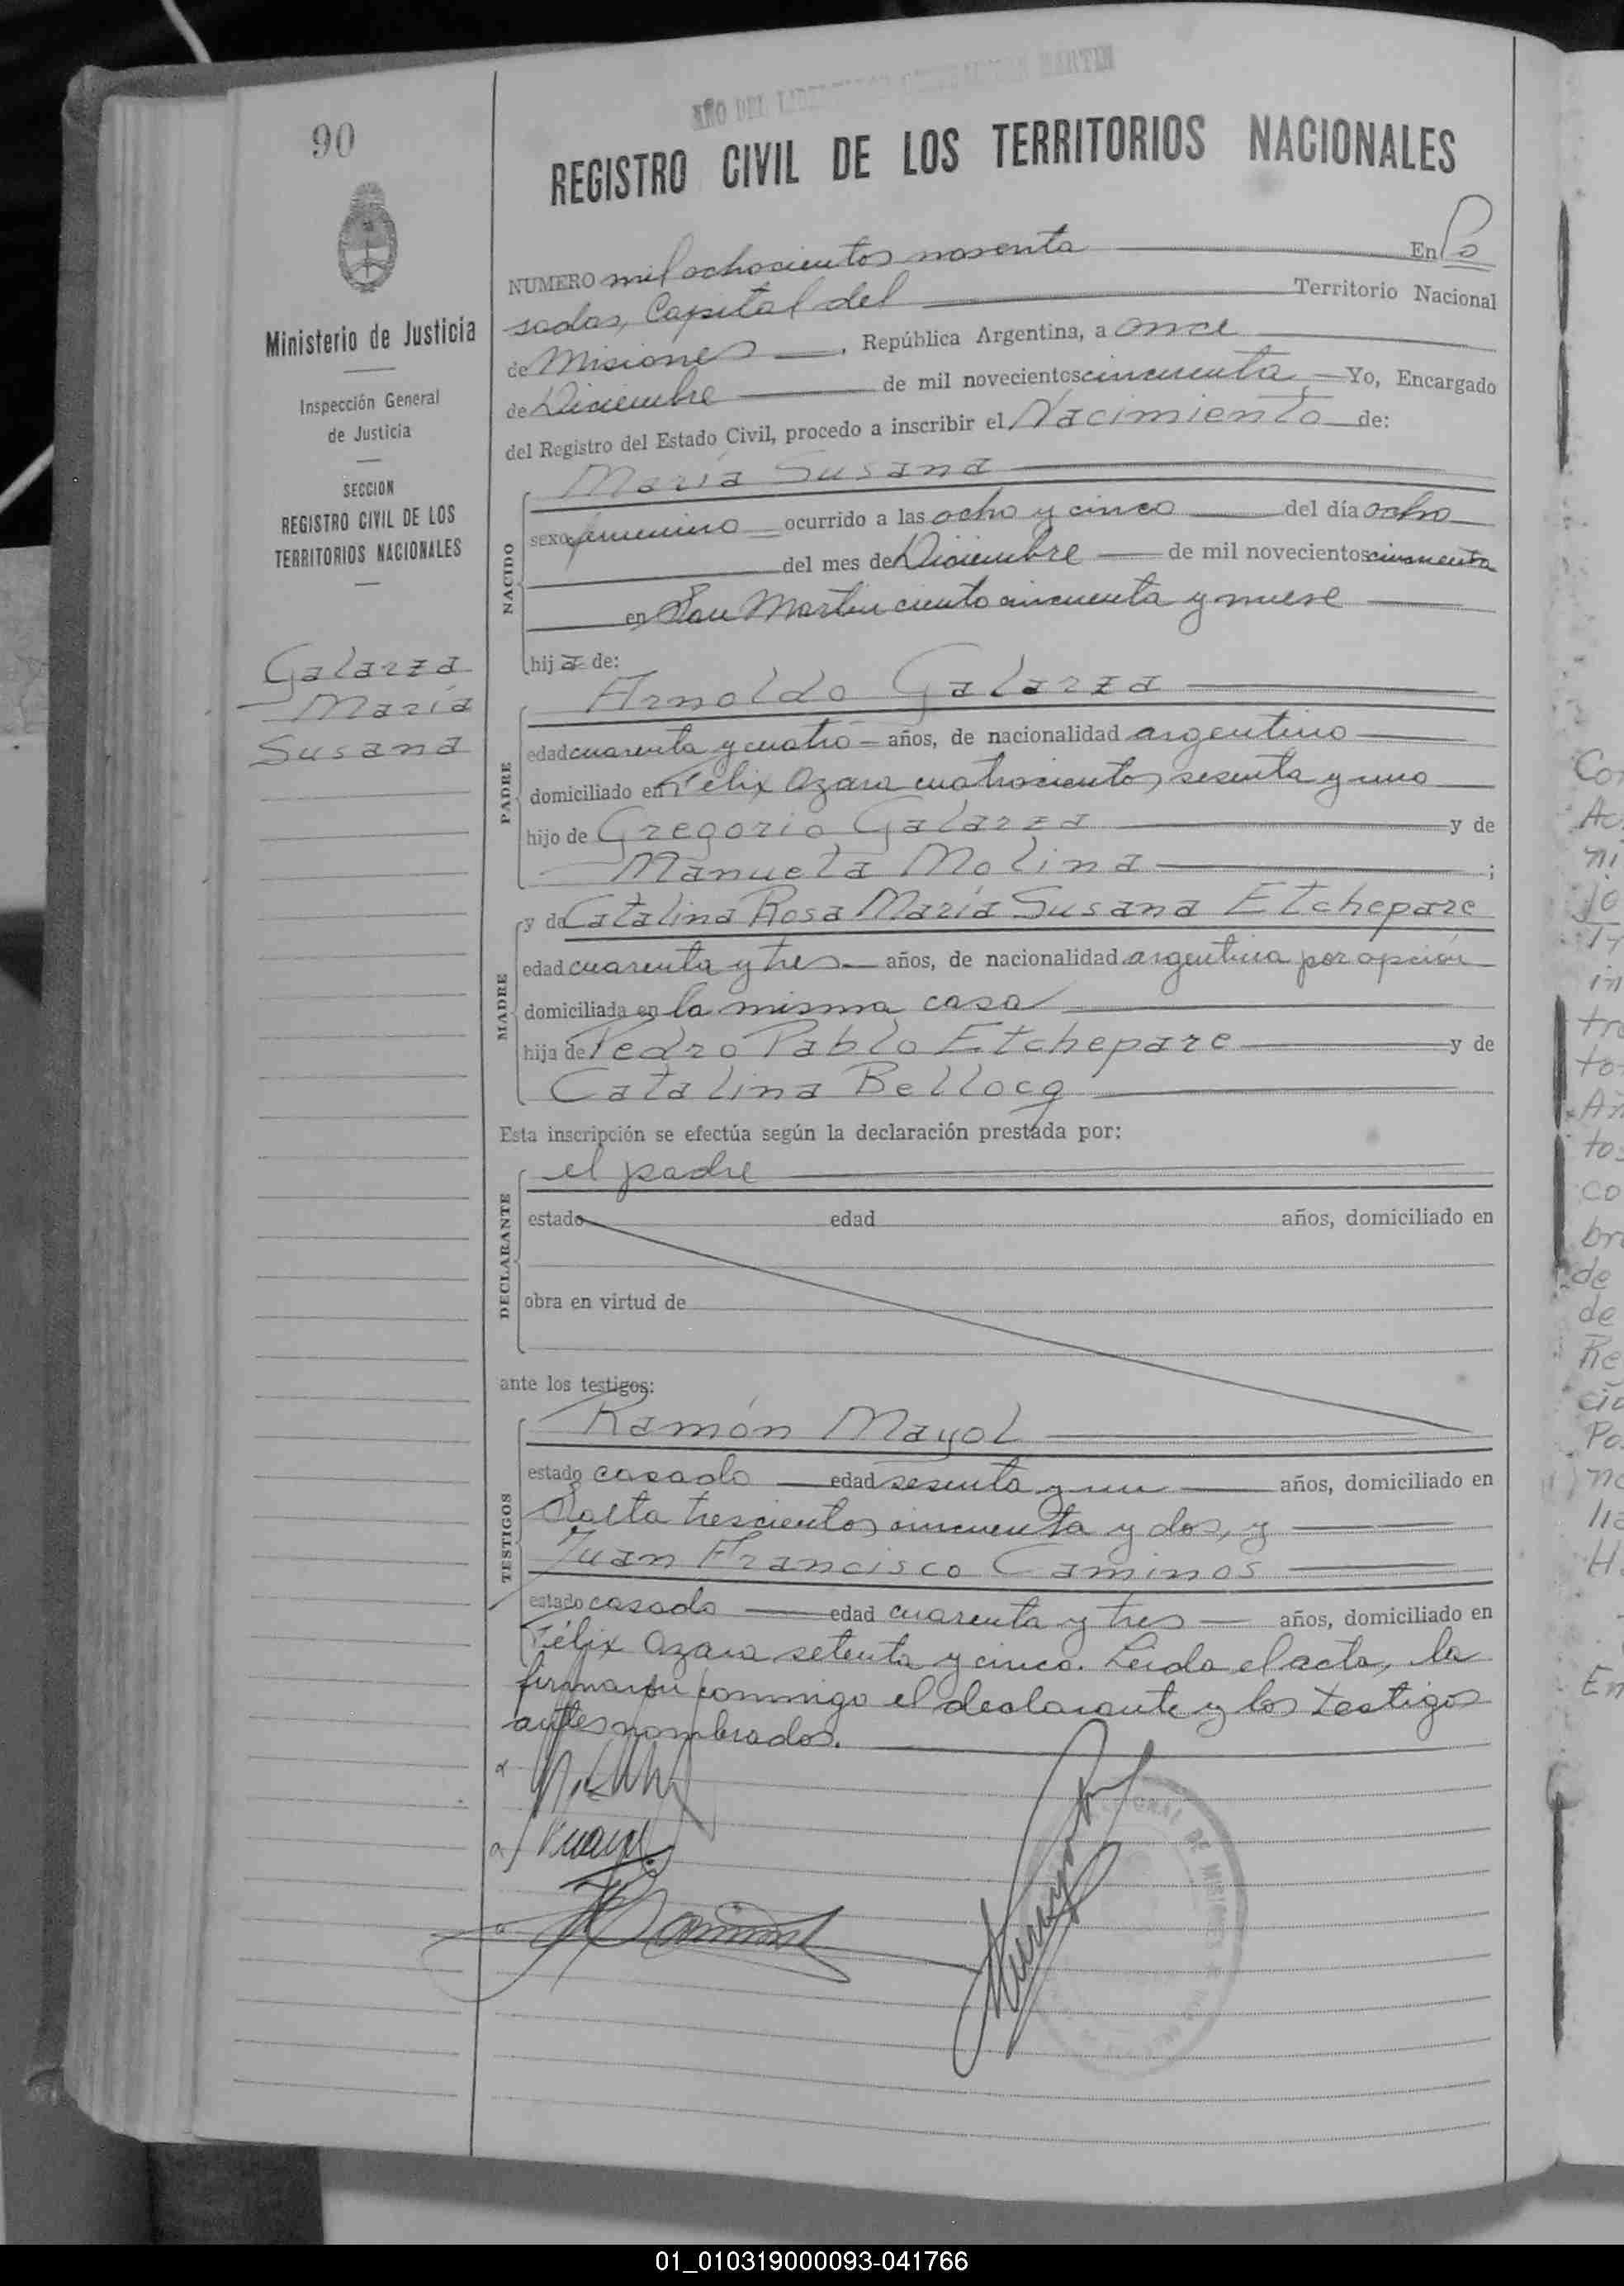 AÑO DEL LIBERTADOR GENERAL SAN MARTIN
90
REGISTRO CIVIL DE LOS TERRITORIOS NACIONALES
Ministerio de Justicia
Inspección General
de Justicia
SECCION
REGISTRO CIVIL DE LOS
TERRITORIOS NACIONALES
Galarza
María
Susana
NUMERO mil ochocientos noventa En Po
sadas, Capital del Territorio Nacional
de Misiones, República Argentina, a once
de Diciembre de mil novecientos cincuenta Yo, Encargado
del Registro del Estado Civil, procedo a inscribir el Nacimiento de:
NACIDO
María Susana
sexo femenino ocurrido a las ocho y cinco del día ocho
del mes de Diciembre de mil novecientos cincuenta
en San Martin ciento cincuenta y nueve
hija de:
PADRE
Arnoldo Galarza
edad cuarenta y cuatro años, de nacionalidad argentino
domiciliado en Félix Azara cuatrocientos sesenta y uno
hijo de Gregorio Galarza y de
Manuela Molina;
MADRE
y de Catalina Rosa María Susana Etchepare
edad cuarenta y tres años, de nacionalidad argentina por opción
domiciliada en la misma casa
hija de Pedro Pablo Etchepare y de
Catalina Bellocq
Esta inscripción se efectúa según la declaración prestada por:
DECLARANTE
el padre
estado edad años, domiciliado en
obra en virtud de
ante los testigos:
TESTIGOS
Ramón Mayol
estado casado edad sesenta y un años, domiciliado en
Salta trescientos cincuenta y dos, y
Juan Francisco Caminos
estado casado edad cuarenta y tres años, domiciliado en
Félix Azara setenta y cinco. Leida el acta, la
firmaron conmigo el declarante y los testigos
antes nombrados.
Co
Ac
ni
jo
in
tr
to
Añ
to
co
br
de
de
Re
cio
Po
no
H
En
01_010319000093-041766